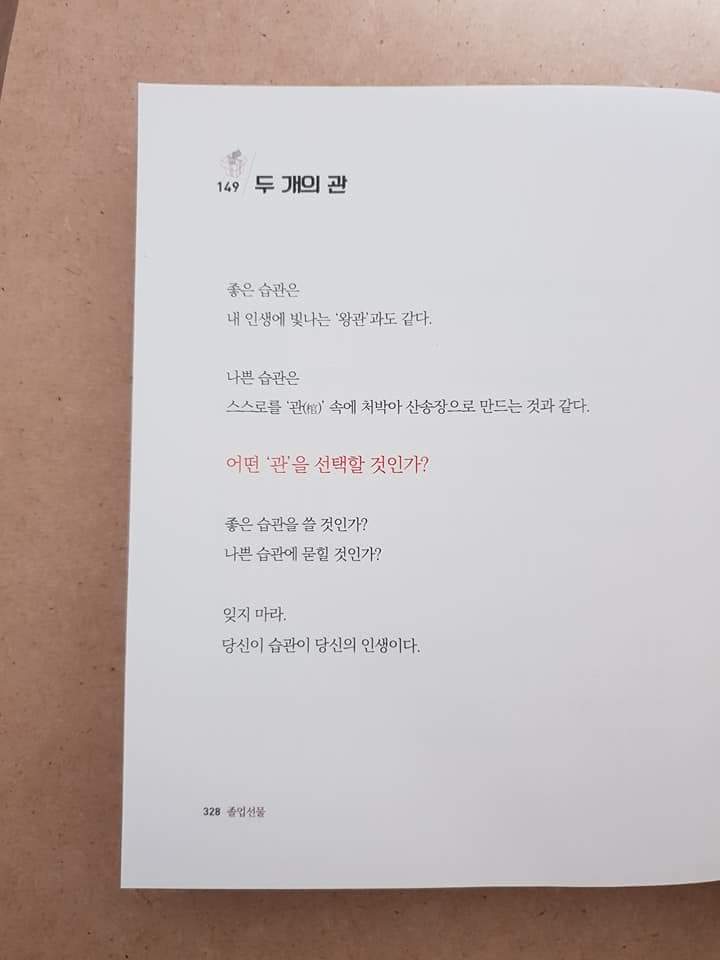 149 두 개의 관
좋은 습관은
내 인생에 빛나는 '왕관'과도 같다.
나쁜 습관은
스스로를 '관(棺)' 속에 처박아 산송장으로 만드는 것과 같다.
어떤 '관'을 선택할 것인가?
좋은 습관을 쓸 것인가?
나쁜 습관에 묻힐 것인가?
잊지 마라.
당신이 습관이 당신의 인생이다.
328 졸업선물